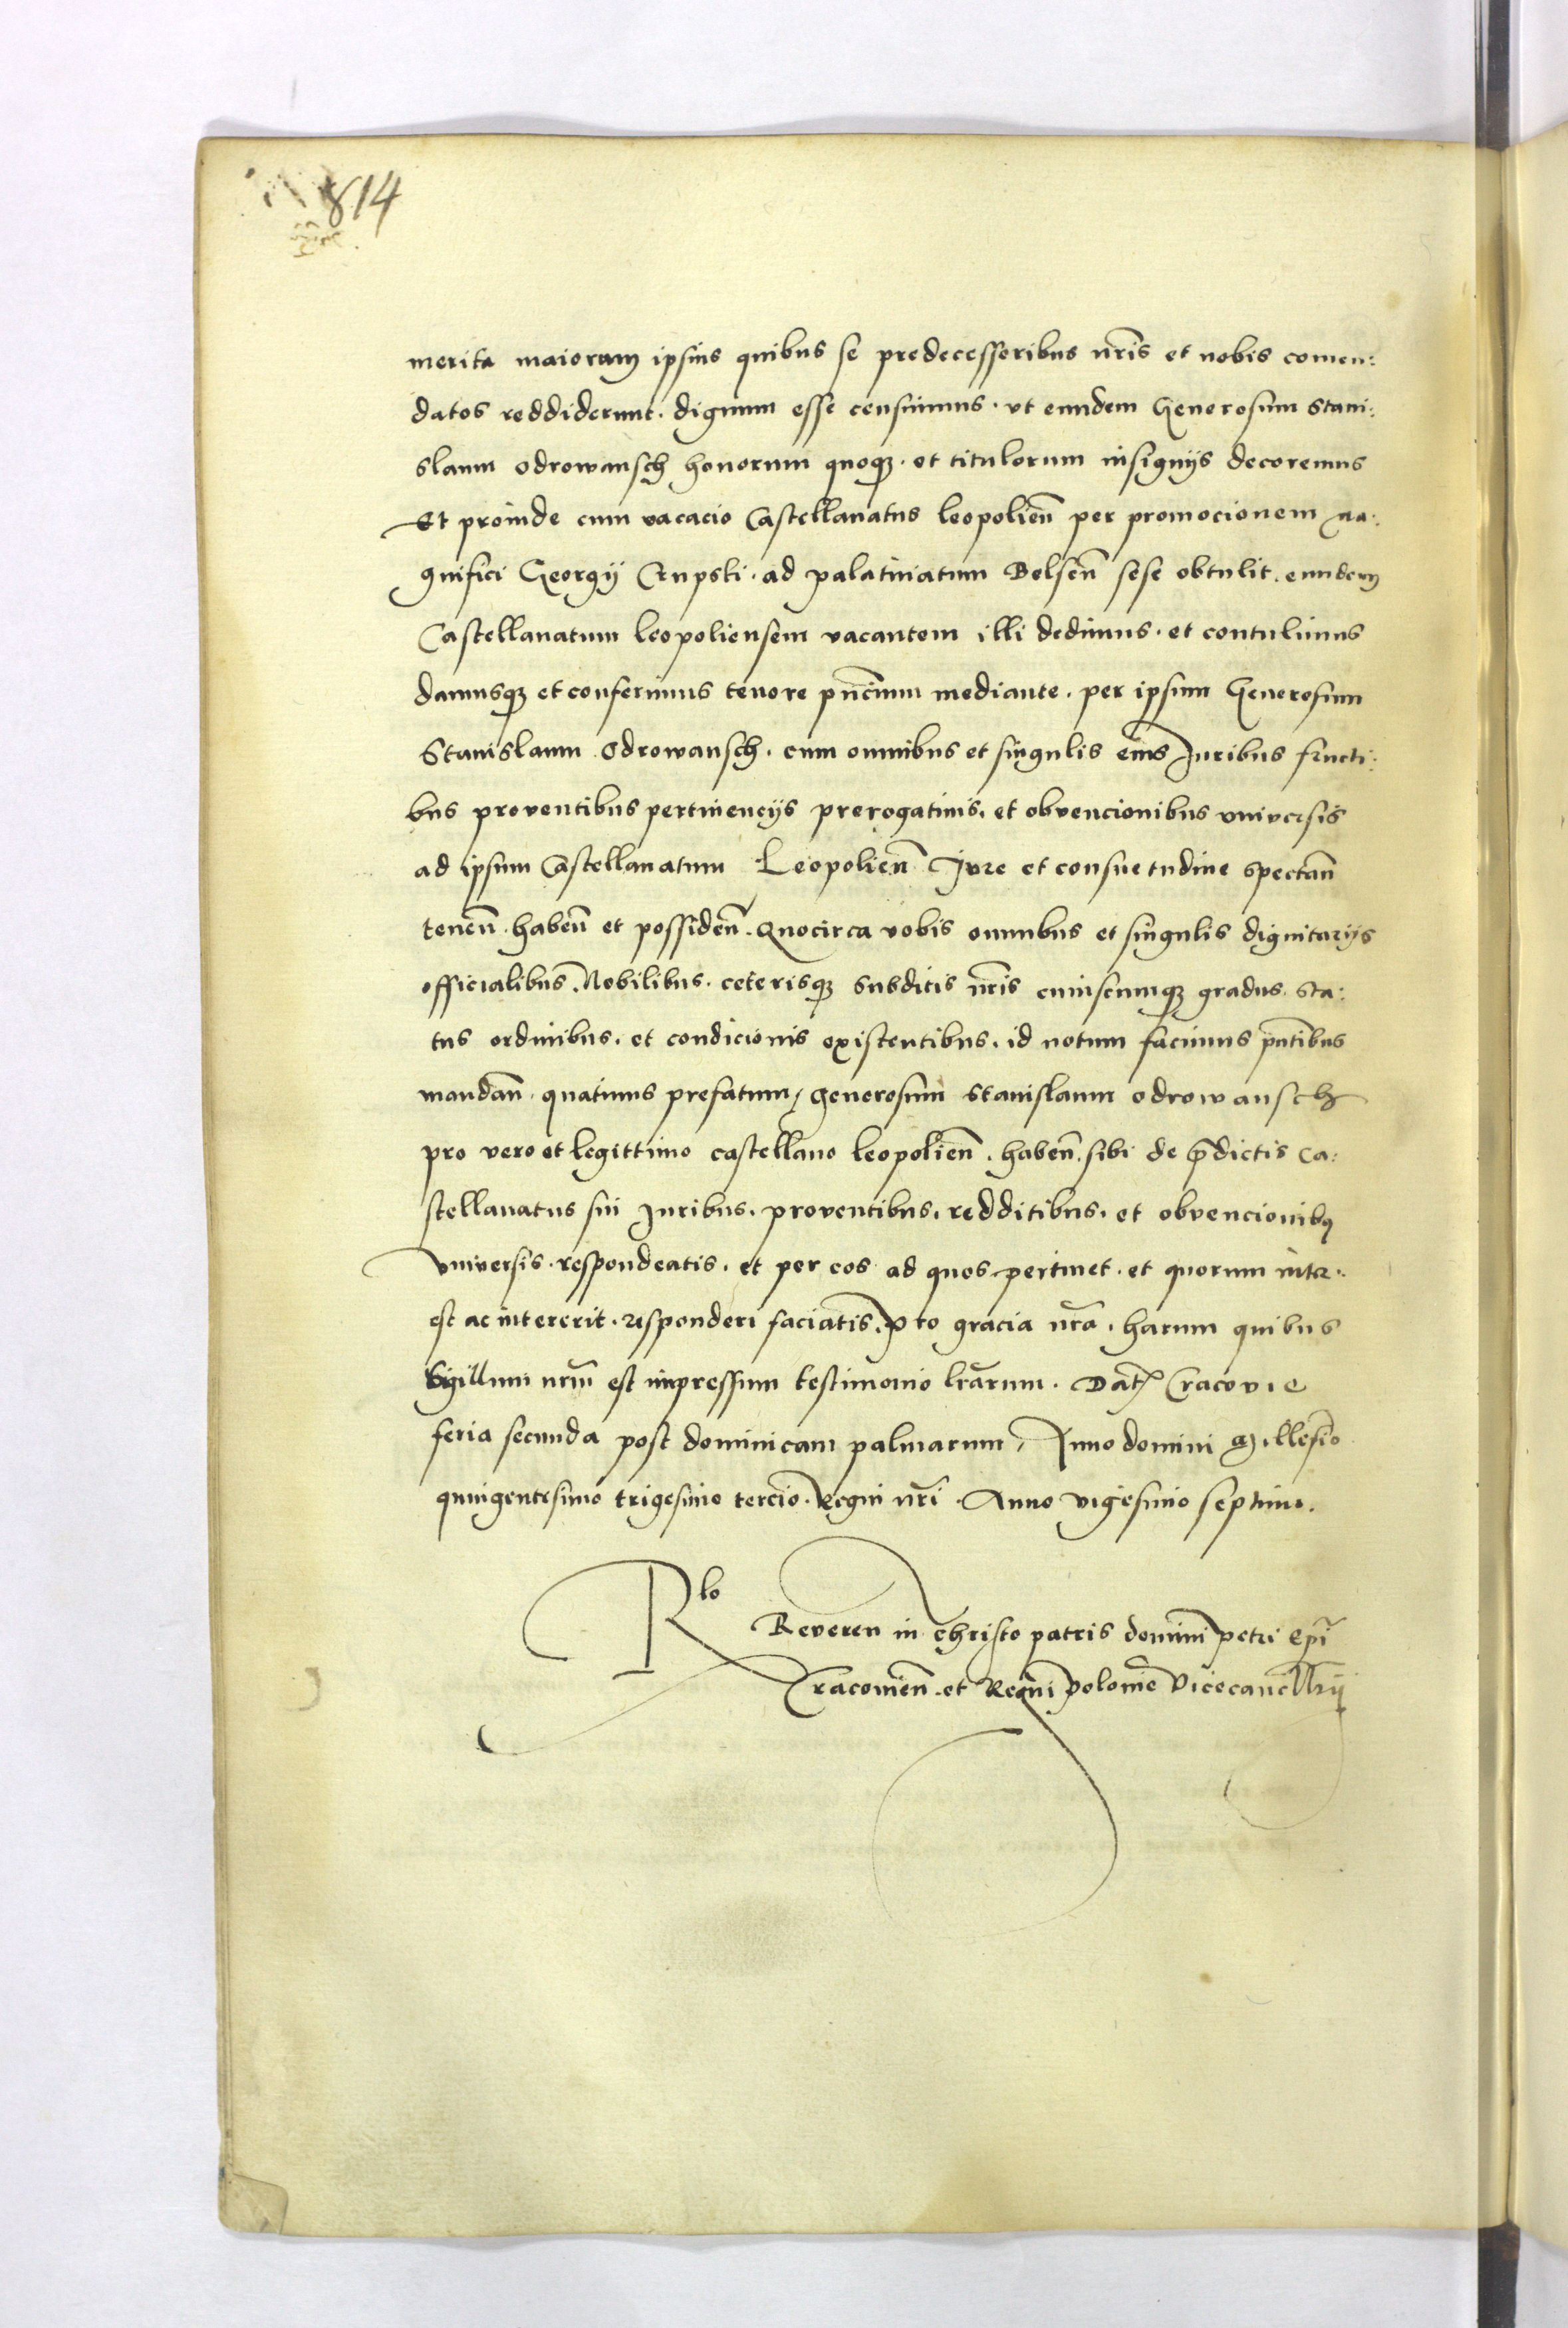 814
merita maiorum ipsius quibus se predecessoribus nr̃is et nobis comen:
datos reddiderunt. dignum esse censuimus. vt eundem Generosum Stani:
slaum odrowansch honorum quoqz. et titulorum insignijs decoremus
Et proinde cum vacacio Castellanatus leopolieñ per promocionem Ma:
gnifici Georgij Crupski. ad palatinatum Belseñ sese obtulit. eundem
Castellanatum leopoliensem vacantem illi dedimus. et contulimus
damusqz et conferimus tenore pñcium mediante. per ipsum Generosum
Stanislaum Odrowansch. cum omnibus et singulis eius Juribus fructi:
bus proventibus pertinencijs prerogatiuis. et obvencionibus vniversis
ad ipsum Castellanatum Leopolieñ Jvre et consuetudine spectañ
teneñ. habeñ et possideñ. Quocirca vobis omnibus et singulis dignitarijs
officialibus. Nobilibus. ceterisqz subditis nr̃is cuiuscumqz gradus. sta:
tus ordinibus. et condicionis existentibus. id notum facimus pñtibus
mandañ. quatinus prefatum, generosum Stanislaum odrowansch
pro vero et legittimo castellano leopolieñ. habeñ. sibi de p̃dictis Ca:
stellanatus sui Juribus. proventibus. redditibus. et obvencionibq
vniversis. respondeatis. et per eos ad quos pertinet. et quorum inter:
est ac intererit. responderi faciatis. p to gracia nr̃a. harum quibus
Sigillum nr̃um est impressum testimonio lr̃arum. Dat Cracovie
feria secunda post dominicam palmarum, Anno domini Millesio
quingentesimo trigesimo tercio. Regni nr̃i. Anno vigesimo septimo.
Rlo
Reveren in christo patris domini petri Ep̃i
Cracovieñ. et Regni polonie Vicecancellrij